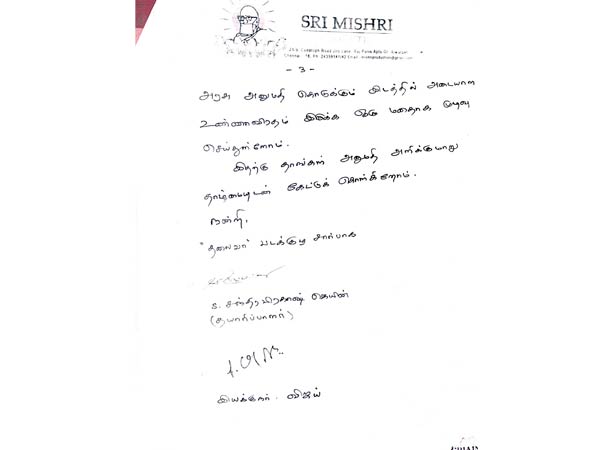 SRI MISHRI
- 3 -
அரசு அனுமதி கொடுக்கும் இடத்தில் அடையாள
உண்ணாவிரதம் இருக்க ஒரு மனதாக முடிவு
செய்துள்ளோம்.
இதற்கு தாங்கள் அனுமதி அளிக்குமாறு
தாழ்மையுடன் கேட்டுக் கொள்கிறோம்.
நன்றி.
"தலைவா" படக்குழு சார்பாக
S. சந்திரபிரகாஷ் ஜெயின்
(தயாரிப்பாளர்)
இயக்குநர். விஜய்